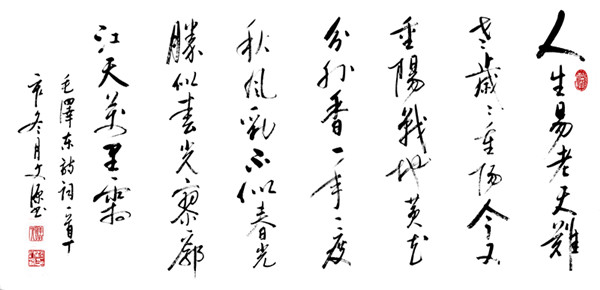 人生易老天難
老歲々重陽今又
重陽戰地黃花
分外香一年一度
秋風勁不似春光
勝似春光寥廓
江天萬里霜
毛澤東詩詞一首丁
亥冬月文源書